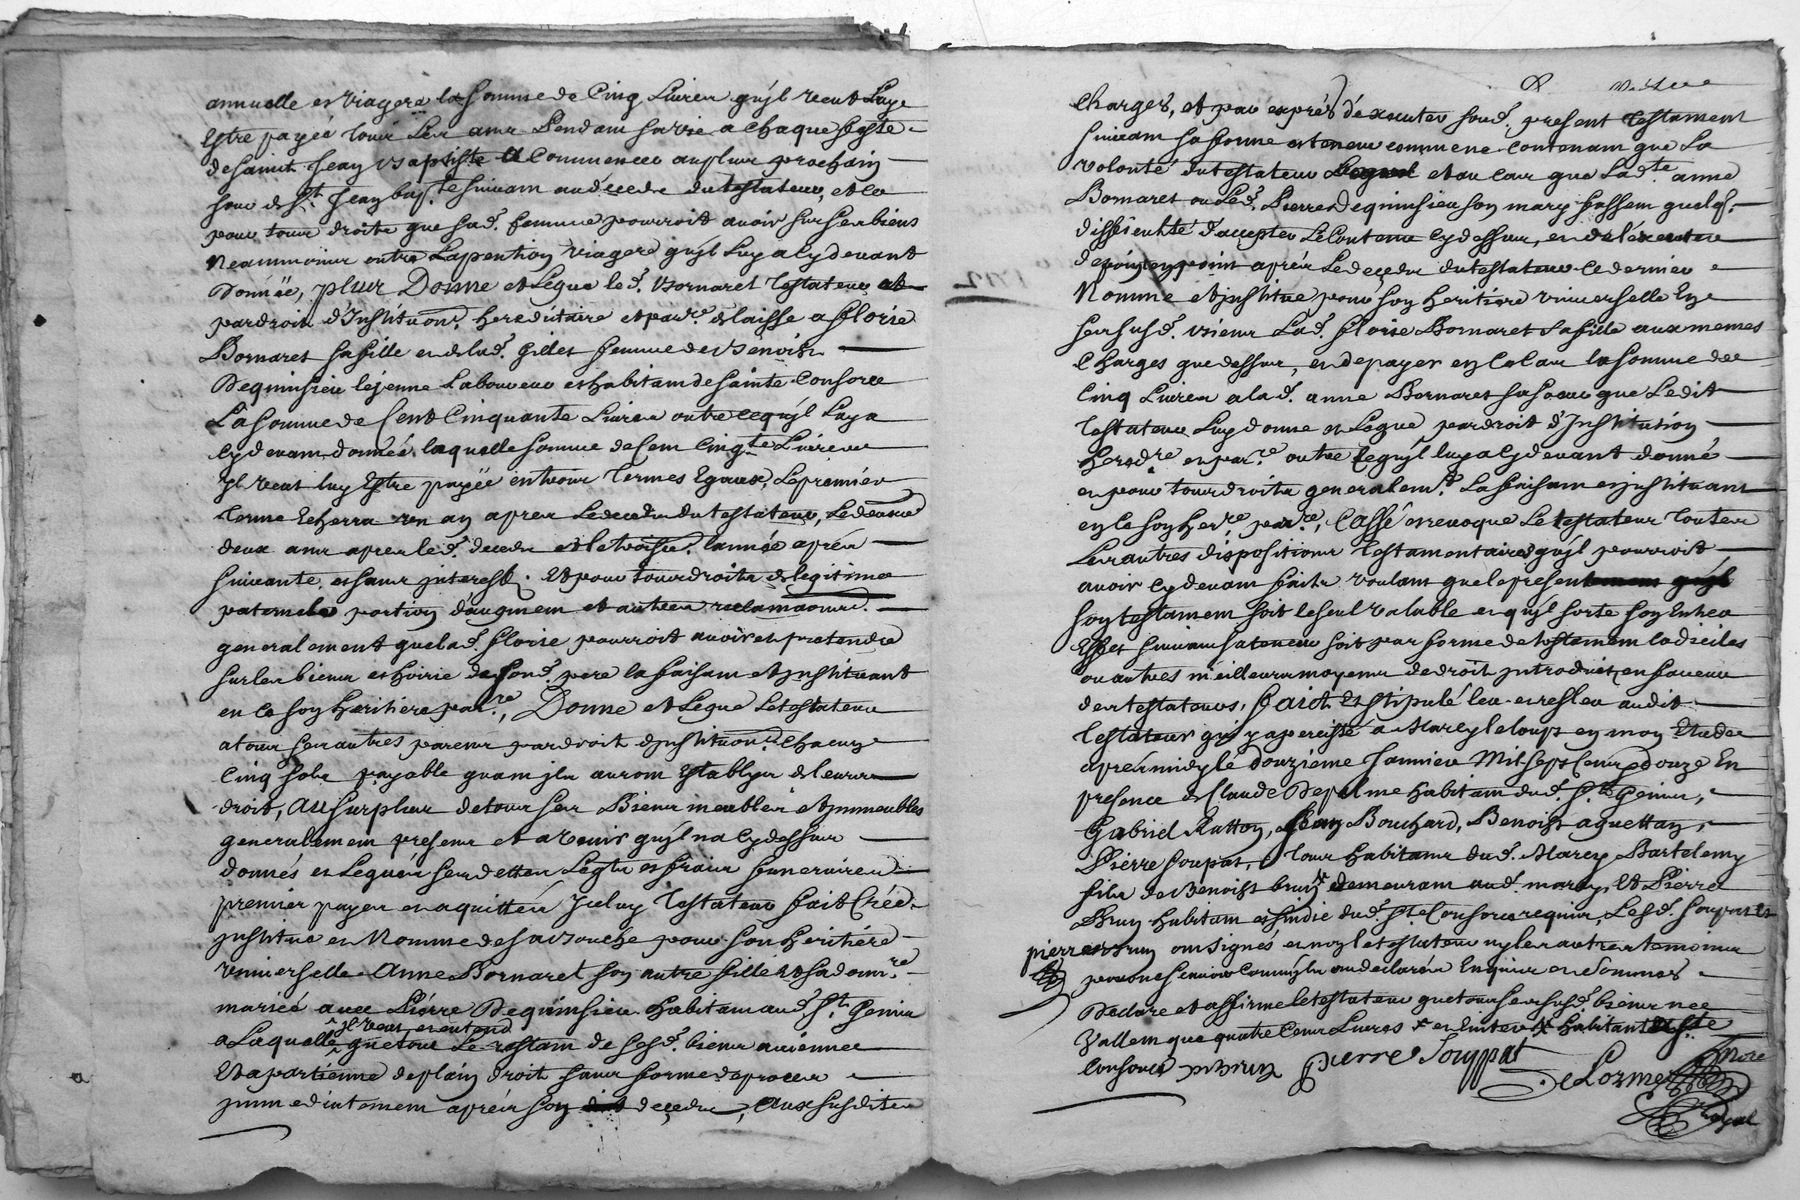 annuelle et viagere la somme de Cinq Livres qu'jl veut Luy
Estre payée tous Les ans Pendant sa vie a Chaque feste
de saint Jean Baptiste A Commencer au plus prochain
jour de St. Jean bapt.te suivant au déceds du testateur, et ce
pour tous droits que sad. femme pourroit avoir sur ses biens
Neammoins outre La pention viagere qu'jl Luy a Cydevant
Donnée, plus Donne et Legue led. Bornaret Testateur
par droit d'Institution. hereditaire et par.re delaisse a florie
Bornaret sa fille et de lad. Gillet femme de Benoist
Dequinsieu le jeune Laboureur et habitant de sainte Consorce
La somme de Cent Cinquante Livres outre ce qu'jl Luy a
Cydevant donnée, laquelle somme de Cent Cinq.te Livres
jl veut luy Estre payée en trois Termes Egaux, Le premier
terme Echerra un an apres Le deceds du testateur, Le second
deux ans apres led. deceds et le troisie. l'année apres
suivante et sans jnterest. Et pour tous droits de legitime
paternele portion d'augment et autres reclamaons.
generalement que lad. florie pourroit avoir et pretendre
sur les biens et hoirie de sond. pere la faisant et jnstituant
en ce son heritiere par.re, Donne et Legue Le testateur
a tous ses autres parens par droit d'jnstituon. Chacun
Cinq sols payable quant jls auront Establyn de leurs
droit, Au surplus de tous ses Biens meubles et jmmeubles
generalement presens et avenir qu'jl n'a Cydessus
donnés et Legués ses dettes Legts et frais funeraires
premier payes et aquittés Jceluy Testateur fait Créé
jnstitue et Nomme de sa bouche pour son heritiere
universelle Anne Bornaret son autre fille et sad. om.re
mariée avec Pierre Dequinsieu habitant aud. St. Genis
jl veut et entend
a Laquelle que tous Le restant de sesd. biens avienne
Et apartienne de plain droit sans forme de proces
jmmediatement apres son deceds, Aux susdites
charges, et par exprés d'exeuter sond. present testament
suivant sa forme et teneur comme ne contenant que La
volonté du testateur et au cas que Lad.te anne
Bornaret ou Led. Pierre Dequinsieu son mary fassent quelq.
difficultté d'accepter Le Contenu Cydessus, et de l'exeuter
de point en point aprés Le deceds du testateur Ce dernier
Nomme et jnstitue pour son heritiere universelle En
ses susd. biens Lad. floise Bornaret sa fille aux memes
Charges que dessus, et de payer en Ce Cas la somme de
Cinq Livres a lad. anne Bornaret sa soeur que Ledit
testateur Luy donne et Legue par droit d'Jnstitution
hered.re et par.re outre Ce qu'jl luy a Cydevant donné
et pour tous droits generalem.t La faisant et jnstituant
en Ce son her.re par.re, Cassé et revoque Le testateur toutes
Les autres dispositions testamentaires qu'jl pourroit
avoir Cydevant faits voulant que le present
son testament soit le seul valable et qu'jl sorte son Entier
Effet suivant sa teneur soit par forme de testament codiciles
ou autres meilleurs moyens de droit jntroduits en faveur
des testateurs, fait Et stipulé leu et releu audit
testateur qui y a persisté a Marcy le loup en mon Etude
aprés midy le douziéme Janvier Mil sept Cens douze En
presence de Claude Depalme habitant dud. St. Genis,
Gabriel Ratton, Jean Bouchard, Benoist aguettan,
Pierre Soupat, tous habitans dud. Marcy Bartelemy
fils de Benoist brun demeurant aud. marcy, Et Pierre
Brun habitant et sindic dud. Ste Consorce requis Lesd. Soupat et
pierre brun ont signés et non le testateur ny les autres temoins
pour ne savoir Comme jls ont declarés Enquis et Sommés
Declare et affirme le testateur que tous ses susd. biens ne
Vallent que quatre Cens Livres x et en linter x habitant Ste
Consorce P Brun Pierre Souppat
Delorme Nore
Royal